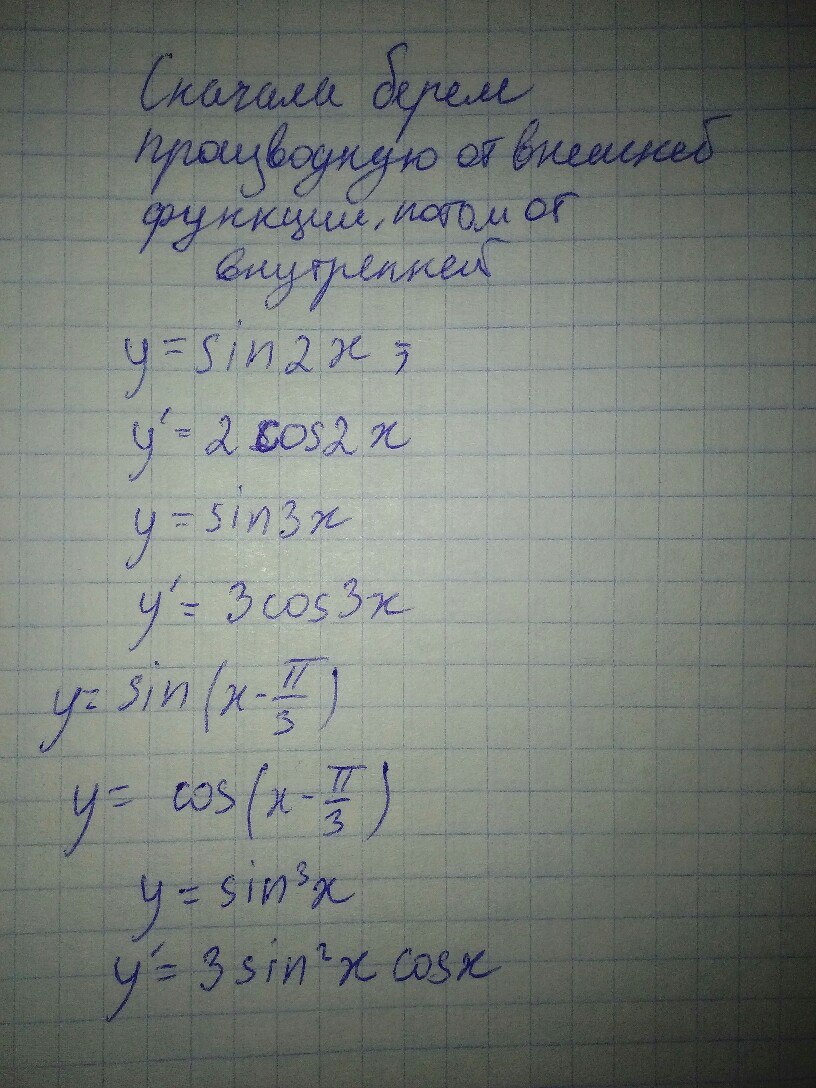 Сначала берем
производную от внешней
функции, потом от
внутренней
y = sin2x =
y' = 2 cos2x
y = sin3x
y' = 3cos3x
y = sin(x - π/3)
y = cos(x - π/3)
y = sin³x
y' = 3 sin²x cosx